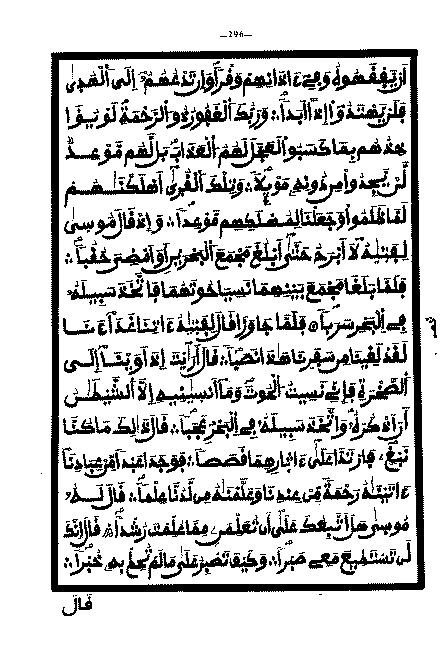 —296—
أَنْ يَّفْقَهُوهُ وَفِي ءَاذَانِهِمْ وَقْرًا وَإِن تَدْعُهُمْ إِلَى الْهُدَىٰ
فَلَنْ يَّهْتَدُوا إِذًا أَبَدًا وَرَبُّكَ الْغَفُورُ ذُو الرَّحْمَةِ لَوْ يُؤَا
خِذُهُم بِمَا كَسَبُوا لَعَجَّلَ لَهُمُ الْعَذَابَ بَل لَّهُم مَّوْعِدٌ
لَّنْ يَّجِدُوا مِن دُونِهِ مَوْئِلًا وَتِلْكَ الْقُرَىٰ أَهْلَكْنَٰهُمْ
لَمَّا ظَلَمُوا وَجَعَلْنَا لِمُهْلَكِهِم مَّوْعِدًا وَإِذْ قَالَ مُوسَىٰ
لِفَتَىٰهُ لَا أَبْرَحُ حَتَّىٰ أَبْلُغَ مَجْمَعَ الْبَحْرَيْنِ أَوْ أَمْضِيَ حُقُبًا
فَلَمَّا بَلَغَا مَجْمَعَ بَيْنِهِمَا نَسِيَا حُوتَهُمَا فَاتَّخَذَ سَبِيلَهُ
فِي الْبَحْرِ سَرَبًا فَلَمَّا جَاوَزَا قَالَ لِفَتَىٰهُ ءَاتِنَا غَدَاءَنَا
لَقَدْ لَقِينَا مِن سَفَرِنَا هَٰذَا نَصَبًا قَالَ أَرَٰيْتَ إِذْ أَوَيْنَا إِلَى
الصَّخْرَةِ فَإِنِّي نَسِيتُ الْحُوتَ وَمَا أَنسَىٰنِيهِ إِلَّا الشَّيْطَٰنُ
أَنْ أَذْكُرَهُ وَاتَّخَذَ سَبِيلَهُ فِي الْبَحْرِ عَجَبًا قَالَ ذَٰلِكَ مَا كُنَّا
نَبْغِ فَارْتَدَّا عَلَىٰ ءَاثَارِهِمَا قَصَصًا فَوَجَدَا عَبْدًا مِّنْ عِبَادِنَا
ءَاتَيْنَٰهُ رَحْمَةً مِّنْ عِندِنَا وَعَلَّمْنَٰهُ مِن لَّدُنَّا عِلْمًا قَالَ لَهُ
مُوسَىٰ هَلْ أَتَّبِعُكَ عَلَىٰ أَن تُعَلِّمَنِ مِمَّا عُلِّمْتَ رُشْدًا قَالَ إِنَّكَ
لَن تَسْتَطِيعَ مَعِي صَبْرًا وَكَيْفَ تَصْبِرُ عَلَىٰ مَا لَمْ تُحِطْ بِهِ خُبْرًا
قَالَ